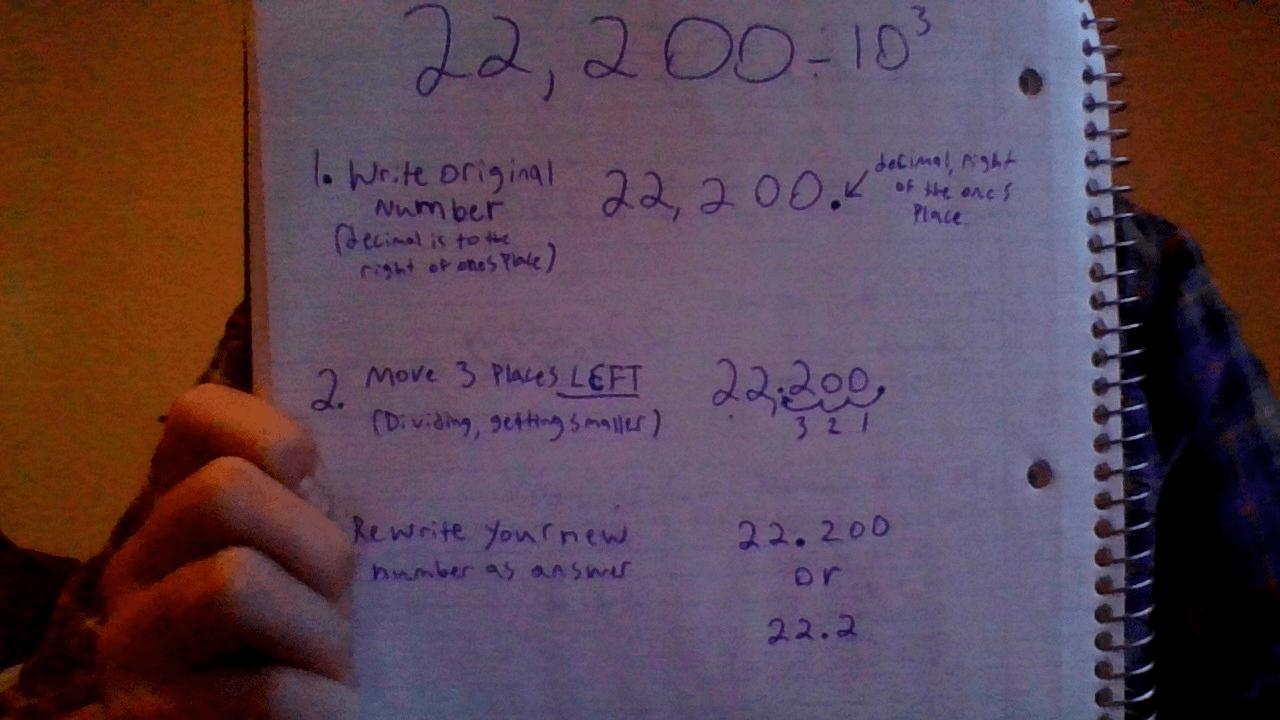 22,200÷10³
1. Write original
Number
(decimal is to the
right of ones place)
22,200.
decimal, right
of the ones
Place
2. Move 3 Places LEFT
(Dividing, getting smaller)
22,.200.
3 2 1
Rewrite your new
number as answer
22.200
or
22.2